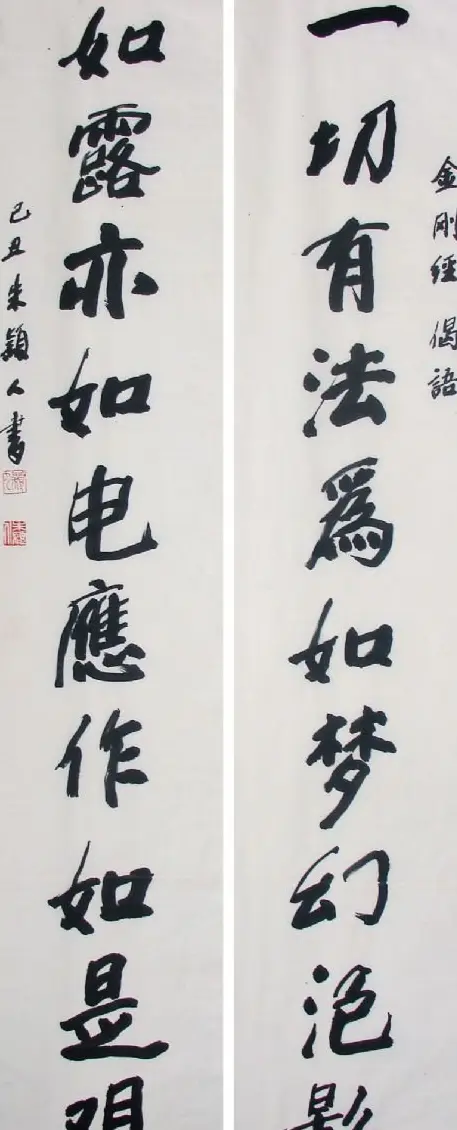 金剛經偈語
一切有法爲如梦幻泡影
如露亦如电應作如是观
己丑朱穎人書